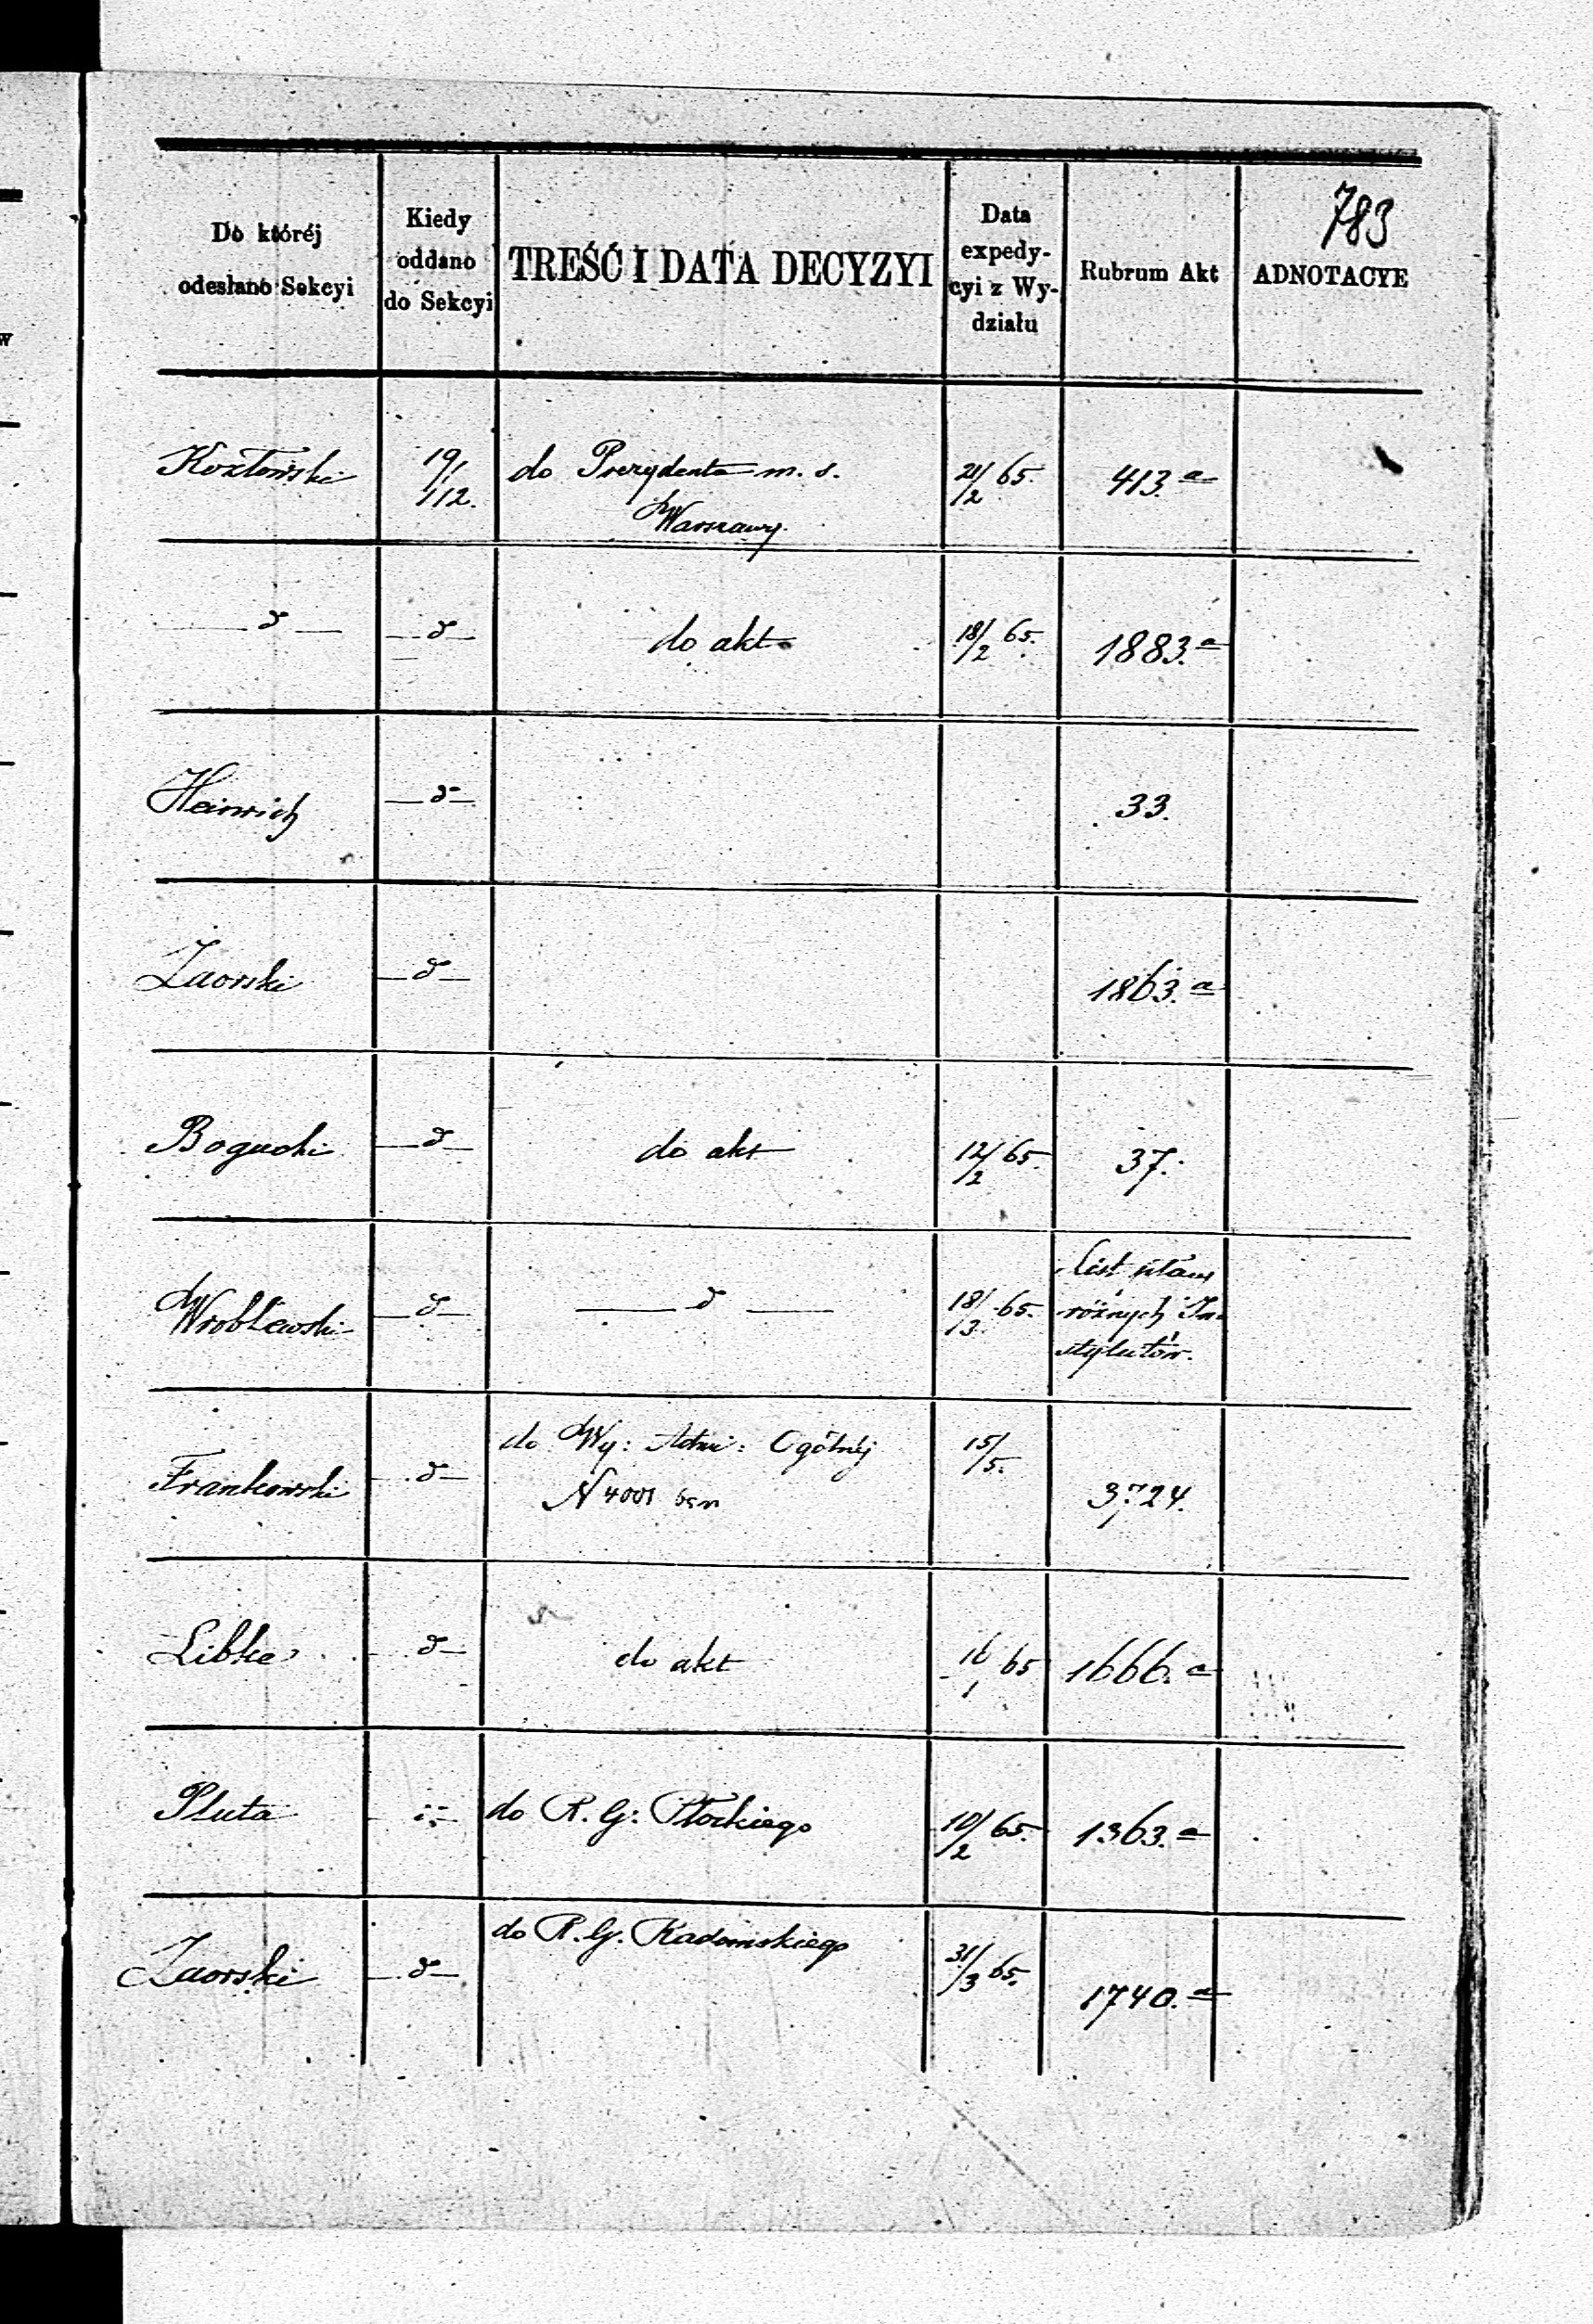 783
Do któréj odesłano Sekcyi
Kiedy oddano do Sekcyi
TREŚĆ I DATA DECYZYI
Data expedy-cyi z Wy-działu
Rubrum Akt
ADNOTACYE
Kozłowski 19/12. do Prezydenta m. s. Warszawy. 21/2 65. 413.a
d d do akt 18/2 65. 1883.a
Heinrich d 33.
Zaorski d 1863.a
Bogucki d do akt 12/2 65. 37.
Wroblewski d d 18/3. 65. List różnych In-stytutów.
Frankowski d do Wy: Adm: Ogólnéj 15/5. 3724.
N 4001
Libke d do akt 16/1 65 1666.a
Pluta do R. G: Płockiego 10/2 65. 1363.a
Zaorski d do R. G. Radomskiego 31/3 65. 1740.a